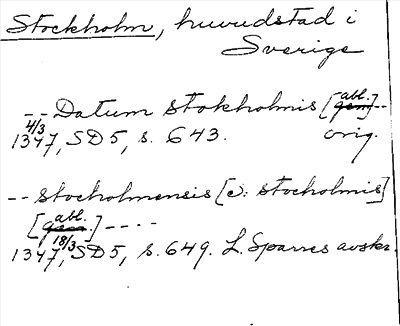 Stockholm, huvudstad i
Sverige
-- Datum stokholmis [abl.] --
4/3
1347, SD 5, s. 643. orig.
-- stocholmensis [ɔ: stocholmis]
[abl.] ----
18/3
1347, SD 5, s. 649. L. Sparres avskr.